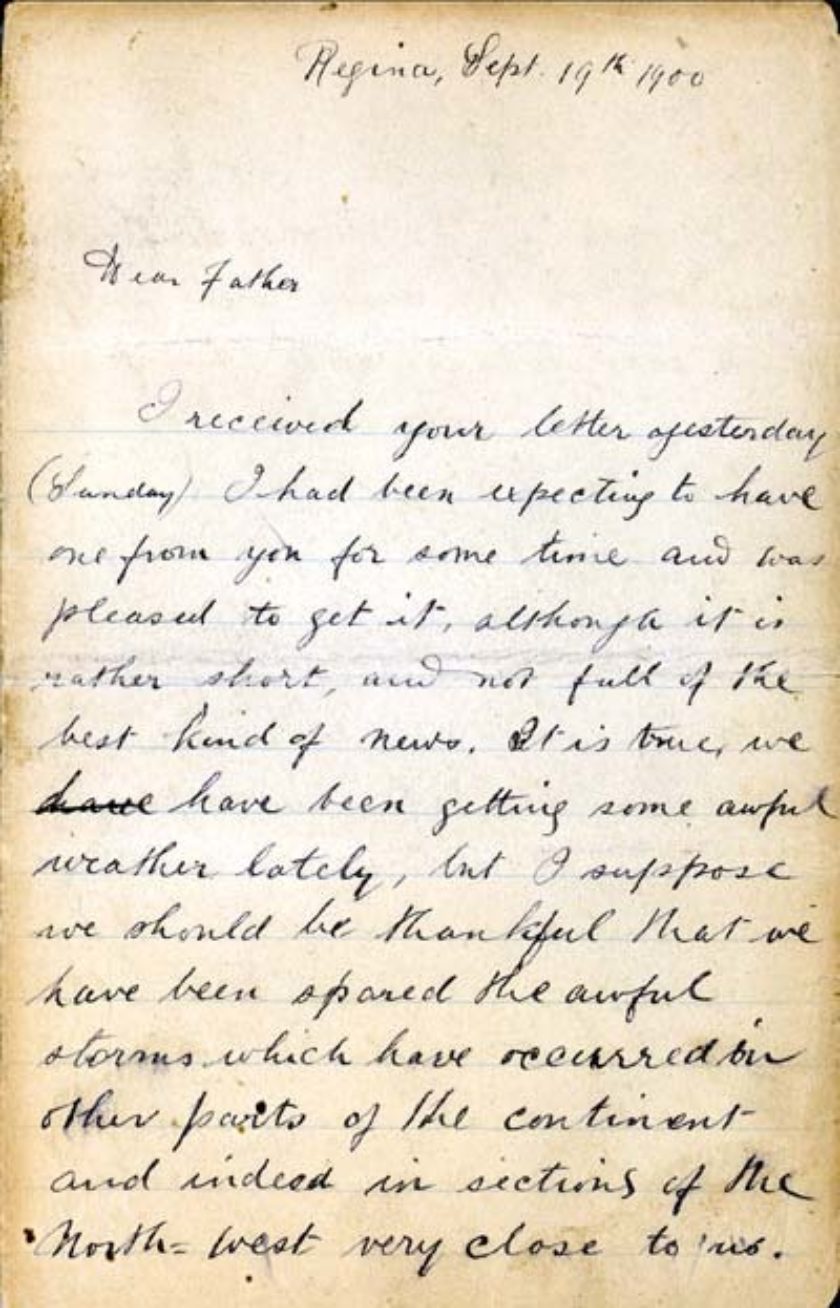 Regina, Sept. 19th 1900
Dear Father
I received your letter yesterday
(Sunday) I had been expecting to have
one from you for some time and was
pleased to get it, although it is
rather short, and not full of the
best kind of news. It is true, we
have have been getting some awful
weather lately, but I suppose
we should be thankful that we
have been spared the awful
storms which have occurred in
other parts of the continent
and indeed in sections of the
North=west very close to us.